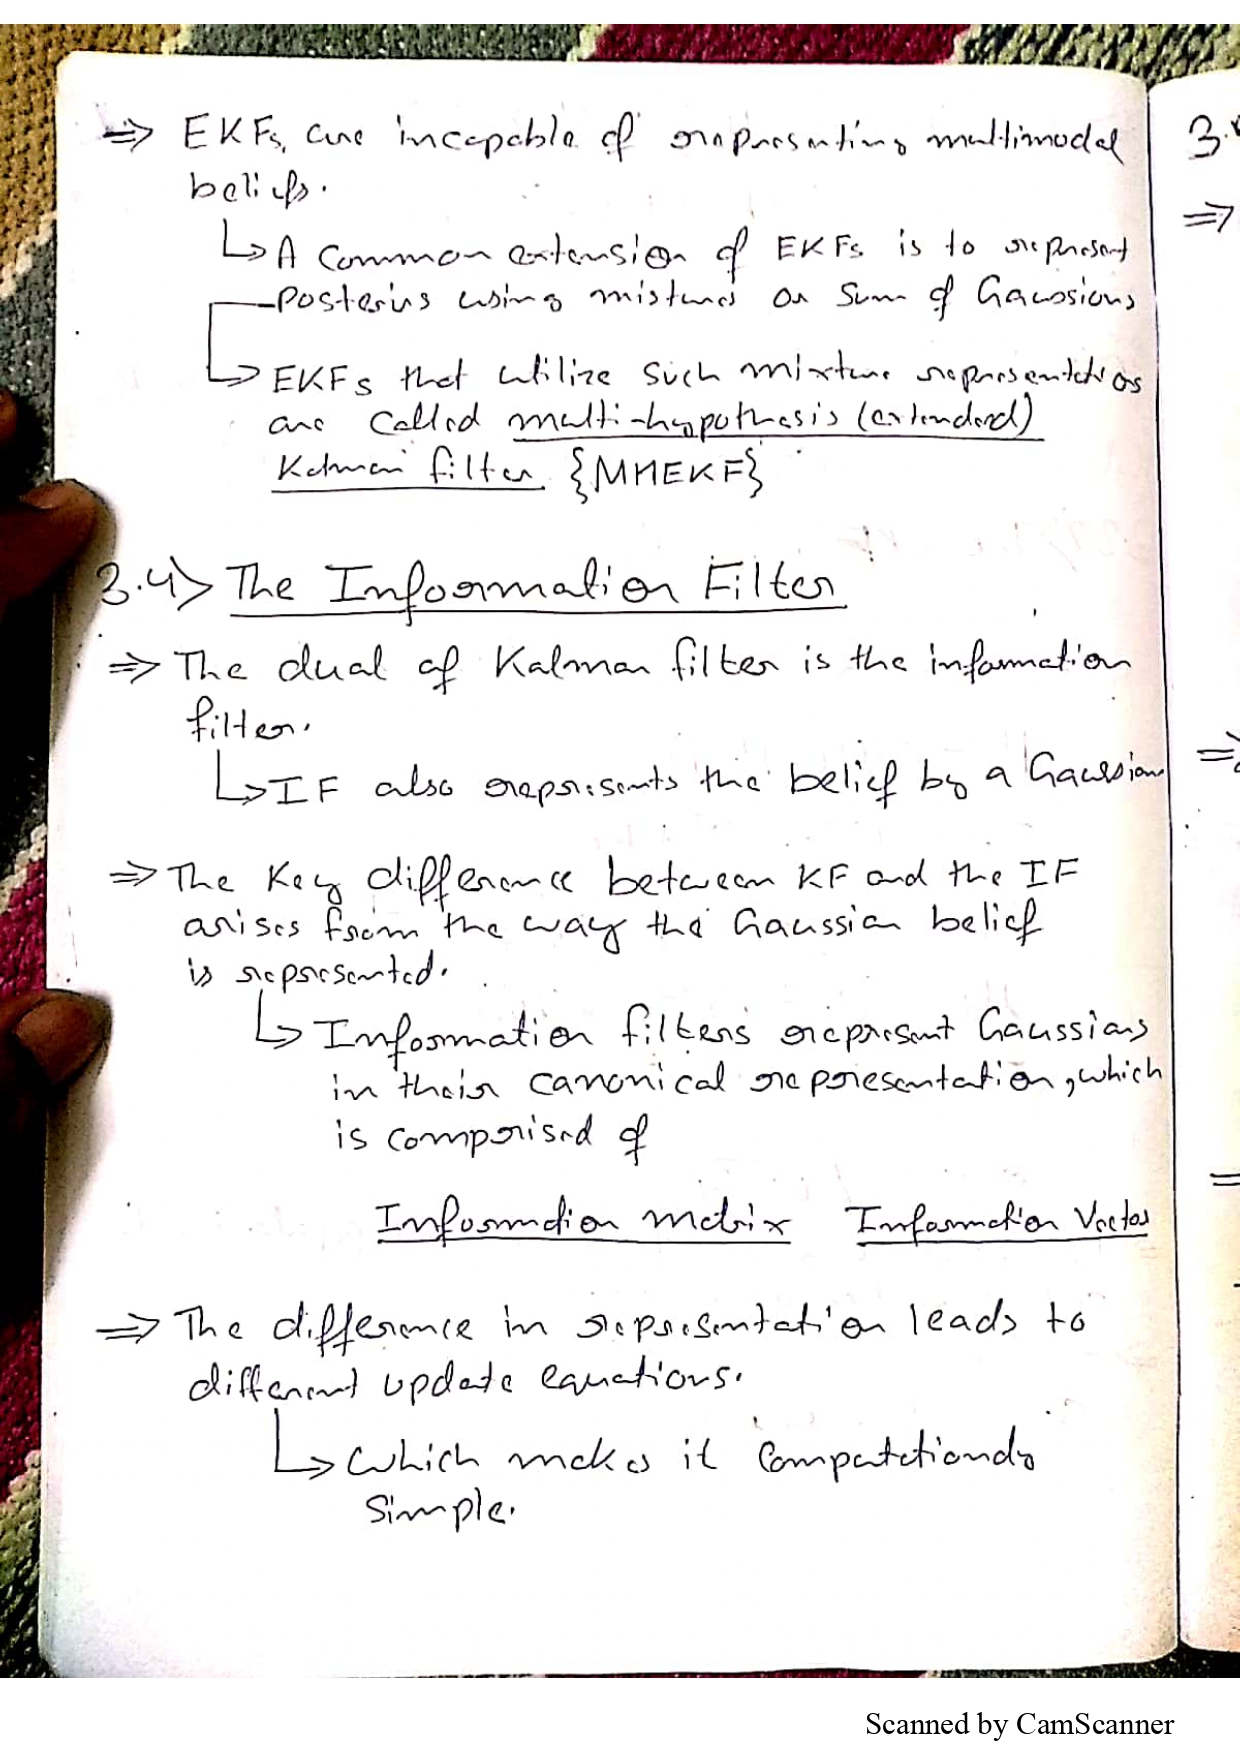 ⇒ EKFs, are incapable of representing multimodal
beliefs.
↳ A common extension of EKFs is to represent
posteriors using mixtures or sum of Gaussians
↳ EKFs that utilize such mixture representations
are called multi-hypothesis (extended)
Kalman filter {MHEKF}
3.4> The Information Filter
⇒ The dual of Kalman filter is the information
filter.
↳ IF also represents the belief by a Gaussian
⇒ The Key difference between KF and the IF
arises from the way the Gaussian belief
is represented.
↳ Information filters represent Gaussians
in their canonical representation, which
is comprised of
Information matrix Information Vector
⇒ The difference in representation leads to
different update equations.
↳ Which makes it computationally
simple.
3.
⇒
⇒
Scanned by CamScanner